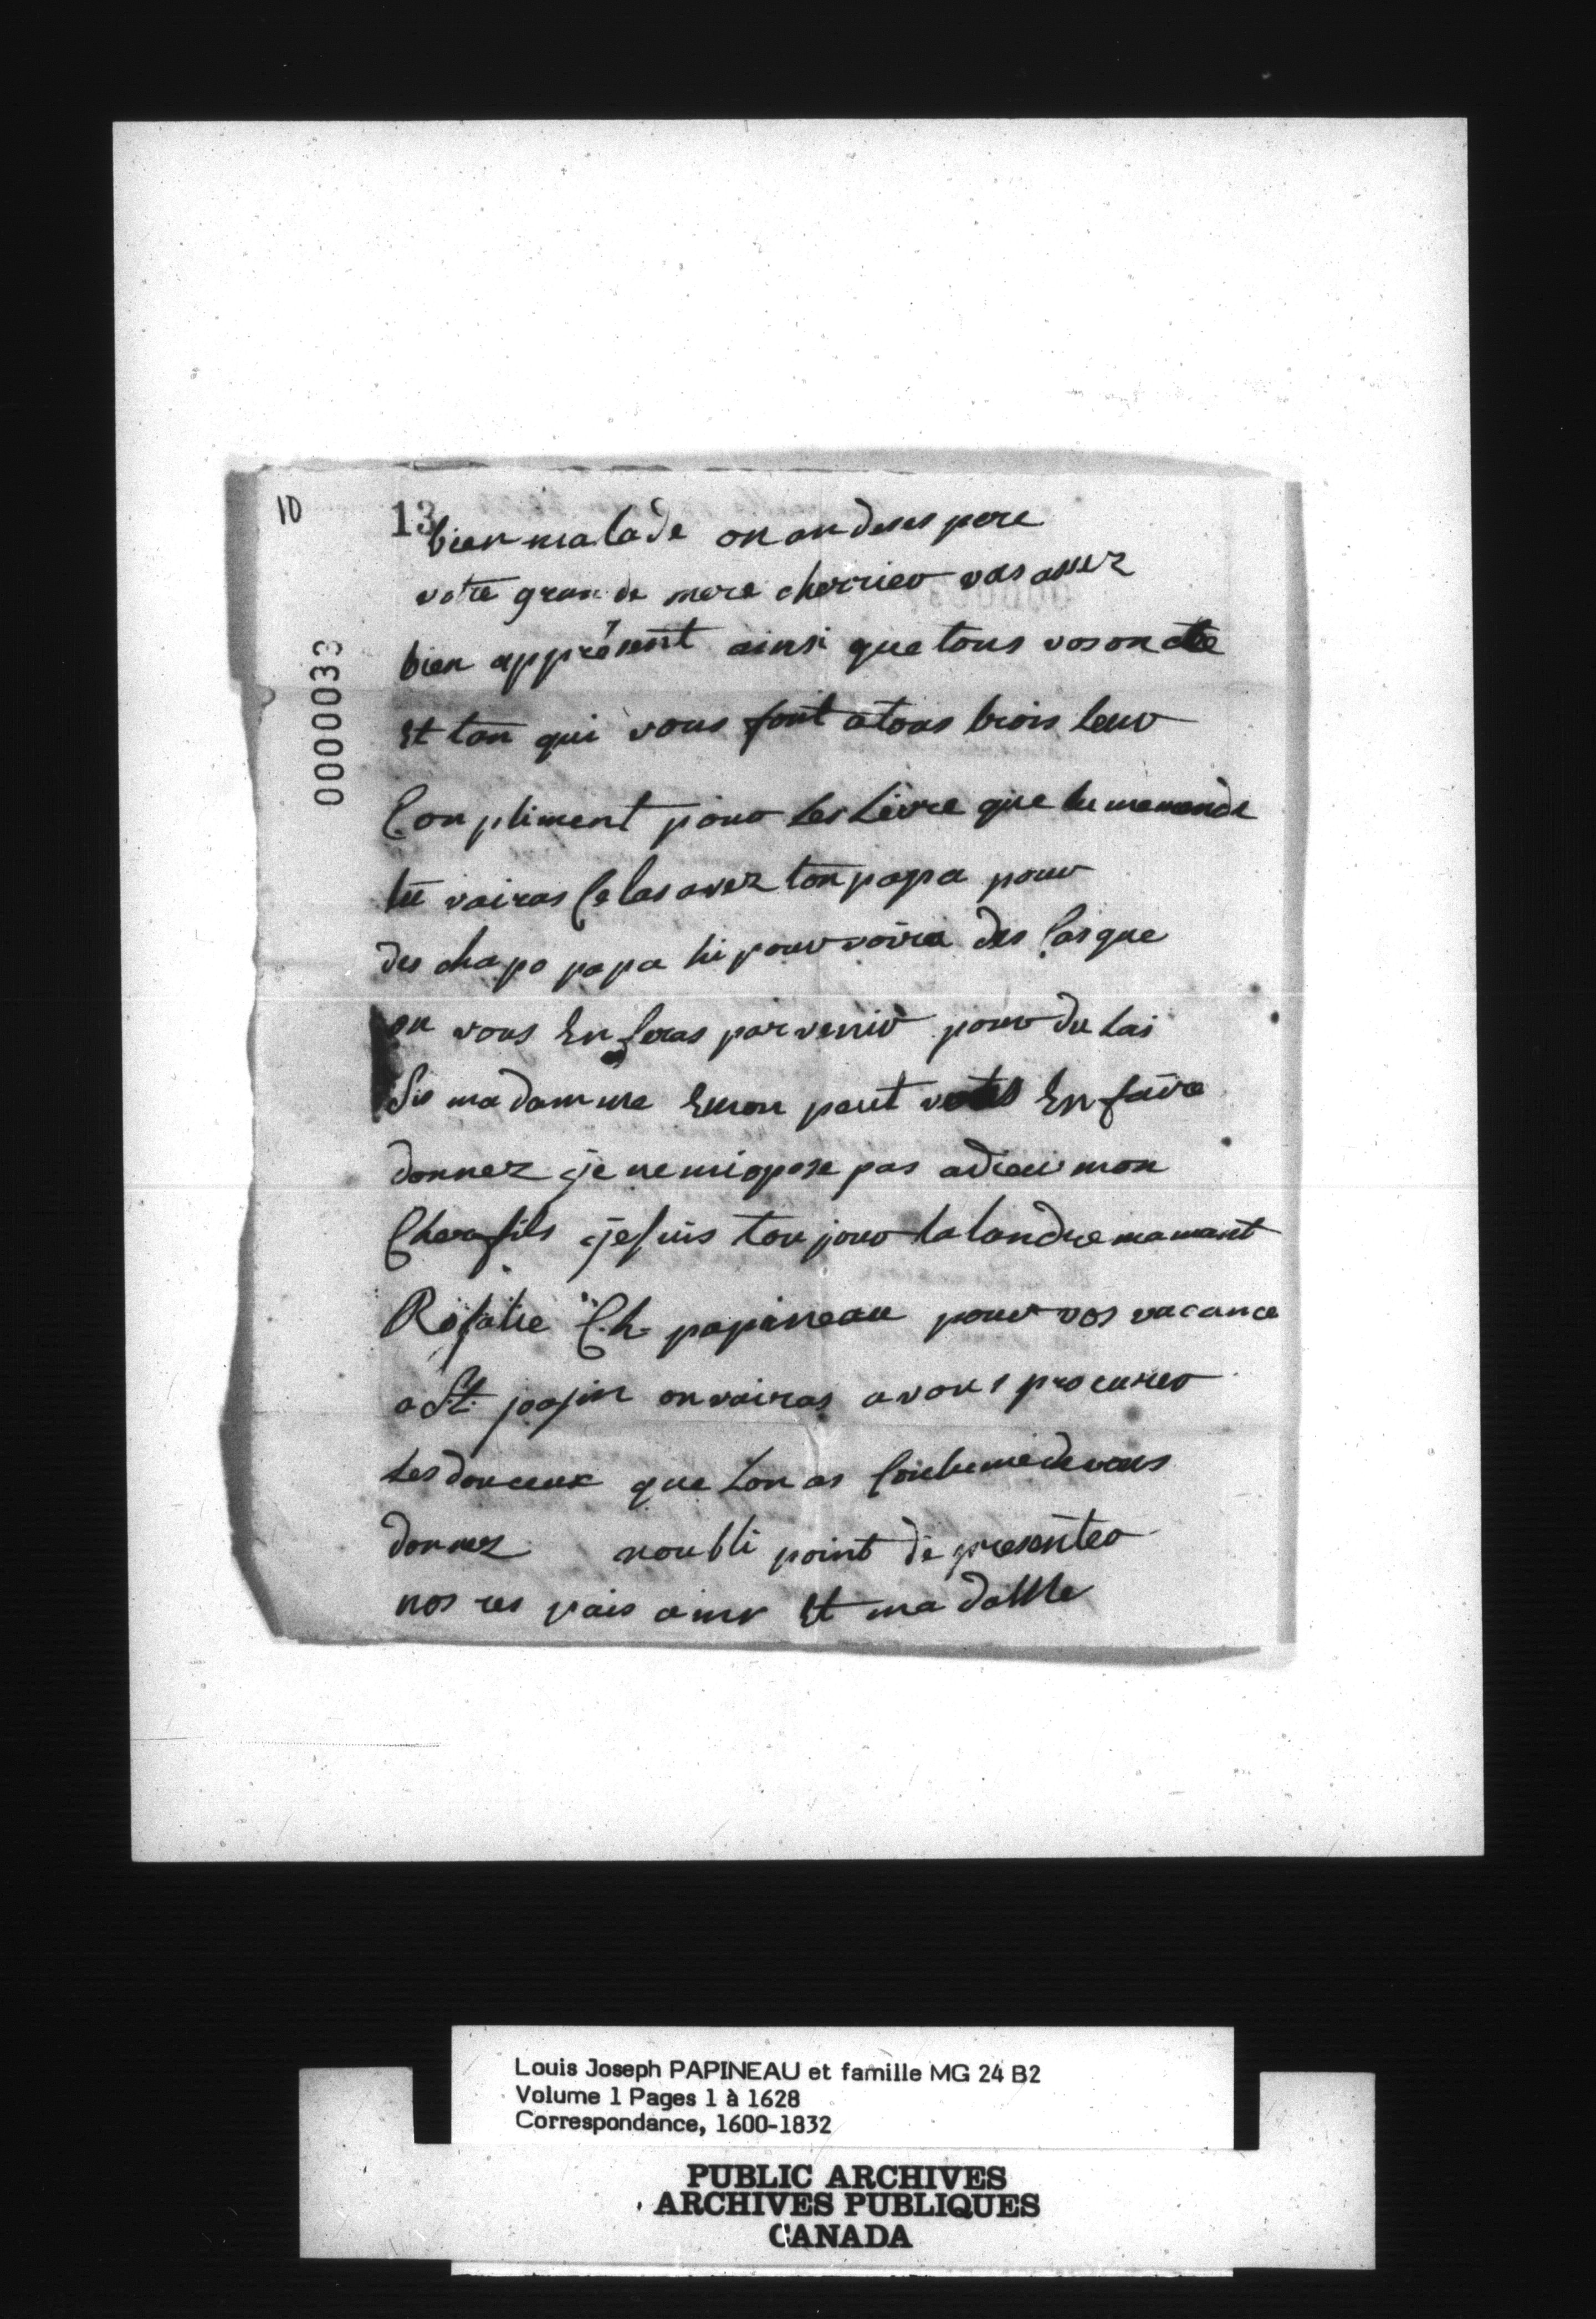 10
13
0000033
bien malade on an deses pere
votre grande mere cherrier vas assez
bien apprésent ainsi que tous vos oncle
Et tan qui vous font a tous trois leur
Conpliment pour Les Livre que tu me mande
tu vairas Celas avez ton papa pour
des chapo papa hi pourvoira des Casque
on vous En feras parvenir pour du lai
Sis madamme Emon peut vous En faire
donnez je ne miopose pas adieu mon
Cher fils je suis toujour ta tandre mamant
Rosalie Ch papineau pour vos vacance
a St. on vairas a vous procurer
Les douceux que Lon as Coutume de vous
donnez noubli point de presenter
nos res pais a mr Et madame
Louis Joseph PAPINEAU et famille MG 24 B2
Volume 1 Pages 1 à 1628
Correspondance, 1600-1832
PUBLIC ARCHIVES
ARCHIVES PUBLIQUES
CANADA